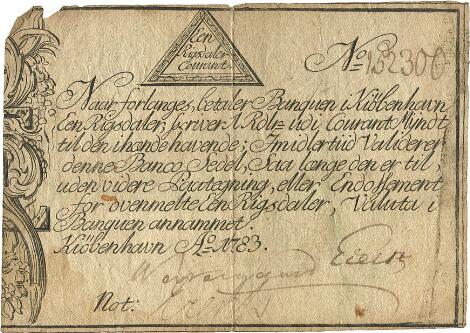 Een
Rigsdaler
Courant
No 152300
Naar forlanges, betaler Banquen i Kiöbenhavn
Een Rigsdaler, skriver 1 Rdlr udi Courant Myndt
til den ihændehavende; Imidlertid Validerer
denne Banco Sedel, saa længe den er til,
uden videre Paategning, eller Endossement
for ovenmelte Een Rigsdaler, Valuta i
Banquen annammet.
Kiöbenhavn Ao 1783.
Not: